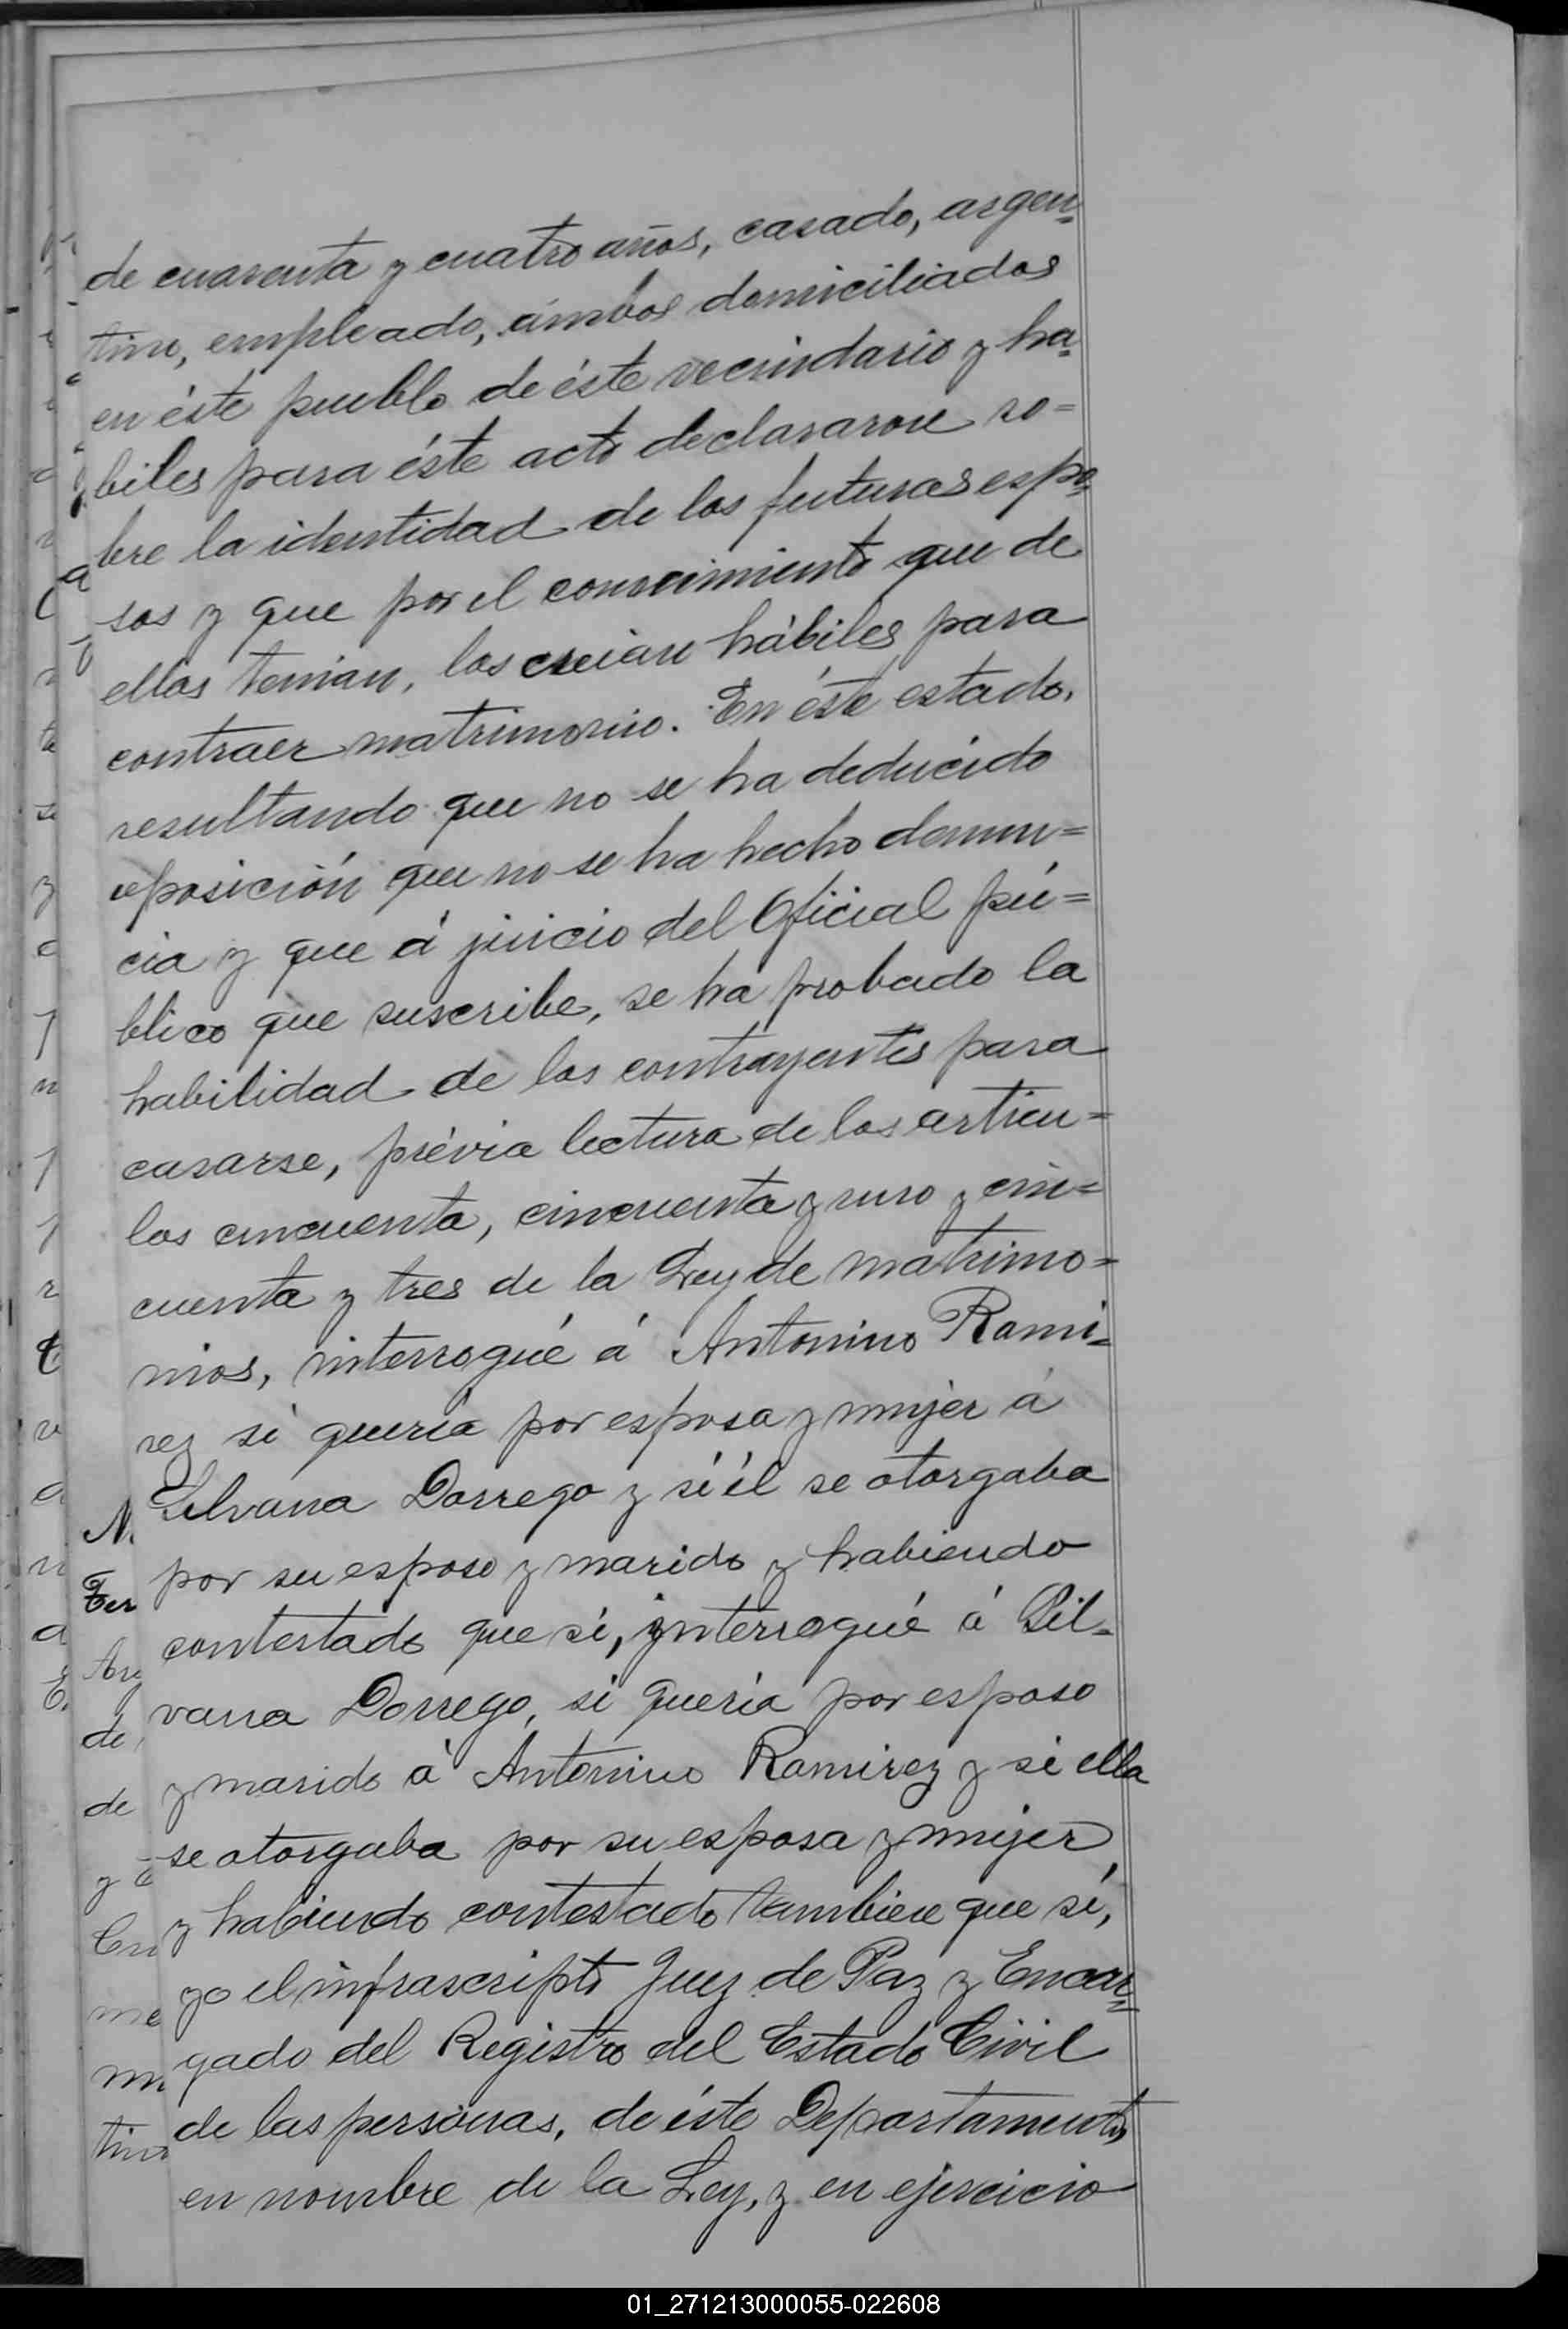 de cuarenta y cuatro años, casado, argen=
tino, empleado, ámbos domiciliados
en éste pueblo de éste vecindario y há=
biles para éste acto declararon so=
bre la identidad de los futuros espo=
sos y que por el conocimiento que de
ellos tenian, los creian hábiles para
contraer matrimonio. En éste estado,
resultando que no se ha deducido
oposición que no se ha hecho denun=
cia y que á juicio del Oficial pú=
blico que suscribe, se ha probado la
habilidad de los contrayentes para
casarse, prévia lectura de los artícu=
los cincuenta, cincuenta y uno y cin=
cuenta y tres de la Ley de matrimo=
nios, interrogué á Antonino Rami=
rez si queria por esposa y mujer á
Silvana Dorrego y si él se otorgaba
por su esposo y marido y habiendo
contestado que sí, interrogué á Sil=
vana Dorrego, si queria por esposo
y marido á Antonino Ramirez y si ella
se otorgaba por su esposa y mujer
y habiendo contestado tambien que sí,
yo el infrascripto Juez de Paz y Encar=
gado del Registro del Estado Civil
de las personas, de éste Departamento,
en nombre de la Ley, y en ejercicio
01_271213000055-022608